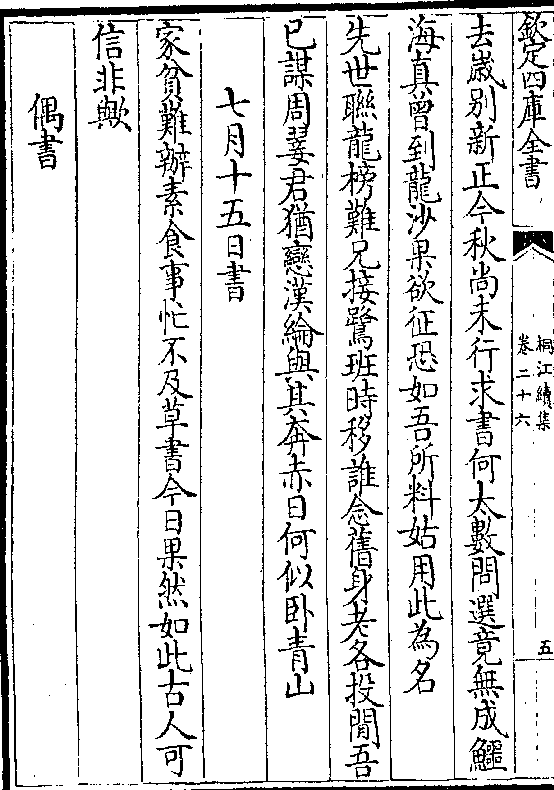 欽定四庫全書
桐江續集
卷二十六
五
去歲別新正今秋尚未行求書何太數問選竟無成鱷
海真曾到龍沙果欲征恐如吾所料姑用此為名
先世聯龍榜難兄接鷺班時移誰念舊身老各投閒吾
已謀周翣君猶戀漢綸與其奔赤日何似卧青山
七月十五日書
家貧難辦素食事忙不及草書今日果然如此古人可
信非歟
偶書